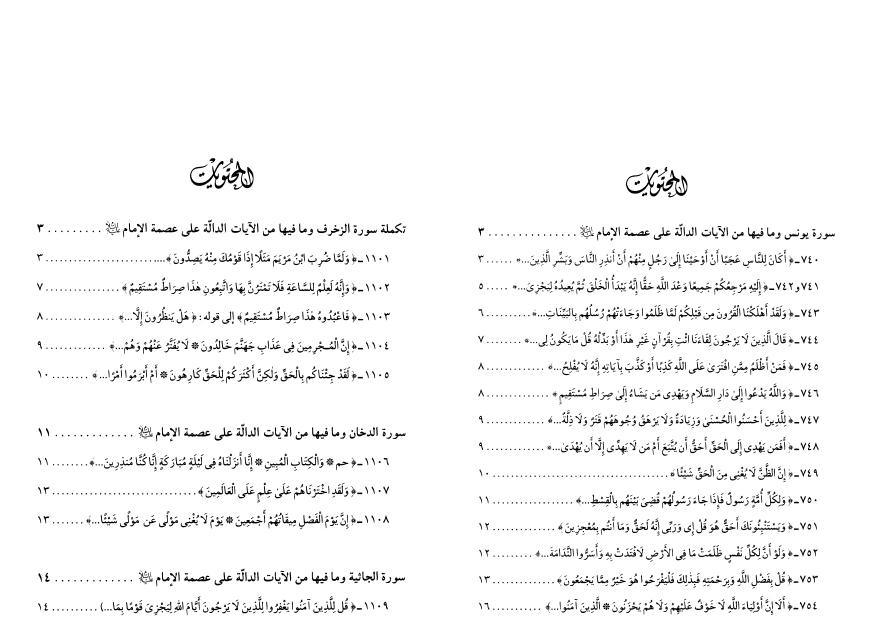 المحتويات
سورة يونس وما فيها من الآيات الدالّة على عصمة الإمام ﷺ ............... ٣
٧٤٠ـ ﴿ أَكَانَ لِلنَّاسِ عَجَبًا أَنْ أَوْحَيْنَا إِلَىٰ رَجُلٍ مِنْهُمْ أَنْ أَنذِرِ النَّاسَ وَبَشِّرِ الَّذِينَ...﴾ ..... ٣
٧٤١و٧٤٢ـ ﴿ إِلَيْهِ مَرْجِعُكُمْ جَمِيعًا وَعْدَ اللَّهِ حَقًّا إِنَّهُ يَبْدَأُ الْخَلْقَ ثُمَّ يُعِيدُهُ لِيَجْزِيَ...﴾ ..... ٥
٧٤٣ـ ﴿ وَلَقَدْ أَهْلَكْنَا الْقُرُونَ مِن قَبْلِكُمْ لَمَّا ظَلَمُوا وَجَاءَتْهُمْ رُسُلُهُم بِالبَيِّنَاتِ...﴾ ......... ٦
٧٤٤ـ ﴿ قَالَ الَّذِينَ لَا يَرْجُونَ لِقَاءَنَا ائْتِ بِقُرْآنٍ غَيْرِ هَذَا أَوْ بَدِّلْهُ قُلْ مَا يَكُونُ لِي...﴾ ........ ٧
٧٤٥ـ ﴿ فَمَنْ أَظْلَمُ مِمَّنِ افْتَرَىٰ عَلَى اللَّهِ كَذِبًا أَوْ كَذَّبَ بِآيَاتِهِ إِنَّهُ لَا يُفْلِحُ...﴾ ............. ٨
٧٤٦ـ ﴿ وَاللَّهُ يَدْعُوا إِلَىٰ دَارِ السَّلَامِ وَيَهْدِي مَن يَشَاءُ إِلَىٰ صِرَاطٍ مُسْتَقِيمٍ ﴾ ............. ٨
٧٤٧ـ ﴿ لِلَّذِينَ أَحْسَنُوا الْحُسْنَىٰ وَزِيَادَةٌ وَلَا يَرْهَقُ وُجُوهَهُمْ قَتَرٌ وَلَا ذِلَّةٌ...﴾ ............. ٩
٧٤٨ـ ﴿ أَفَمَن يَهْدِي إِلَى الْحَقِّ أَحَقُّ أَن يُتَّبَعَ أَمَّن لَا يَهِدِّي إِلَّا أَن يُهْدَىٰ...﴾ ............. ٩
٧٤٩ـ ﴿ إِنَّ الظَّنَّ لَا يُغْنِي مِنَ الْحَقِّ شَيْئًا ﴾ ............................... ١٠
٧٥٠ـ ﴿ وَلِكُلِّ أُمَّةٍ رَسُولٌ فَإِذَا جَاءَ رَسُولُهُمْ قُضِيَ بَيْنَهُم بِالْقِسْطِ...﴾ ................. ١١
٧٥١ـ ﴿ وَيَسْتَنْبِئُونَكَ أَحَقٌّ هُوَ قُلْ إِي وَرَبِّي إِنَّهُ لَحَقٌّ وَمَا أَنتُم بِمُعْجِزِينَ ﴾ ............. ١٢
٧٥٢ـ ﴿ وَلَوْ أَنَّ لِكُلِّ نَفْسٍ ظَلَمَتْ مَا فِي الأَرْضِ لَافْتَدَتْ بِهِ وَأَسَرُّوا النَّدَامَةَ...﴾ ......... ١٢
٧٥٣ـ ﴿ قُلْ بِفَضْلِ اللَّهِ وَبِرَحْمَتِهِ فَبِذَٰلِكَ فَلْيَفْرَحُوا هُوَ خَيْرٌ مِمَّا يَجْمَعُونَ ﴾ ............. ١٣
٧٥٤ـ ﴿ أَلَا إِنَّ أَوْلِيَاءَ اللَّهِ لَا خَوْفٌ عَلَيْهِمْ وَلَا هُمْ يَحْزَنُونَ * الَّذِينَ آمَنُوا...﴾ ........... ١٦
المحتويات
تكملة سورة الزخرف وما فيها من الآيات الدالّة على عصمة الإمام ......... ٣
١١٠١ـ ﴿ وَلَمَّا ضُرِبَ ابْنُ مَرْيَمَ مَثَلًا إِذَا قَوْمُكَ مِنْهُ يَصِدُّونَ ﴾......................... ٣
١١٠٢ـ ﴿ وَإِنَّهُ لَعِلْمٌ لِلسَّاعَةِ فَلَا تَمْتَرُنَّ بِهَا وَاتَّبِعُونِ هَٰذَا صِرَاطٌ مُسْتَقِيمٌ ﴾ ............... ٧
١١٠٣ـ ﴿ فَاعْبُدُوهُ هَٰذَا صِرَاطٌ مُسْتَقِيمٌ ﴾ إلى قوله : ﴿ هَلْ يَنظُرُونَ إِلَّا...﴾ ............... ٨
١١٠٤ـ ﴿ إِنَّ الْمُجْرِمِينَ فِي عَذَابِ جَهَنَّمَ خَالِدُونَ * لَا يُفَتَّرُ عَنْهُمْ وَهُمْ...﴾ ............. ٩
١١٠٥ـ ﴿ لَقَدْ جِئْنَاكُم بِالْحَقِّ وَلَٰكِنَّ أَكْثَرَكُمْ لِلْحَقِّ كَارِهُونَ * أَمْ أَبْرَمُوا أَمْرًا...﴾ ........ ١٠
سورة الدخان وما فيها من الآيات الدالّة على عصمة الإمام ............. ١١
١١٠٦ـ ﴿ حم * وَالْكِتَابِ الْمُبِينِ * إِنَّا أَنزَلْنَاهُ فِي لَيْلَةٍ مُبَارَكَةٍ إِنَّا كُنَّا مُنذِرِينَ...﴾ ........ ١١
١١٠٧ـ ﴿ وَلَقَدِ اخْتَرْنَاهُمْ عَلَىٰ عِلْمٍ عَلَى الْعَالَمِينَ ﴾ ............................. ١٣
١١٠٨ـ ﴿ إِنَّ يَوْمَ الْفَصْلِ مِيقَاتُهُمْ أَجْمَعِينَ * يَوْمَ لَا يُغْنِي مَوْلًى عَن مَوْلًى شَيْئًا...﴾ ........ ١٣
سورة الجاثية وما فيها من الآيات الدالّة على عصمة الإمام ............. ١٤
١١٠٩ـ ﴿ قُل لِلَّذِينَ آمَنُوا يَغْفِرُوا لِلَّذِينَ لَا يَرْجُونَ أَيَّامَ اللهِ لِيَجْزِيَ قَوْمًا بِمَا...) .......... ١٤